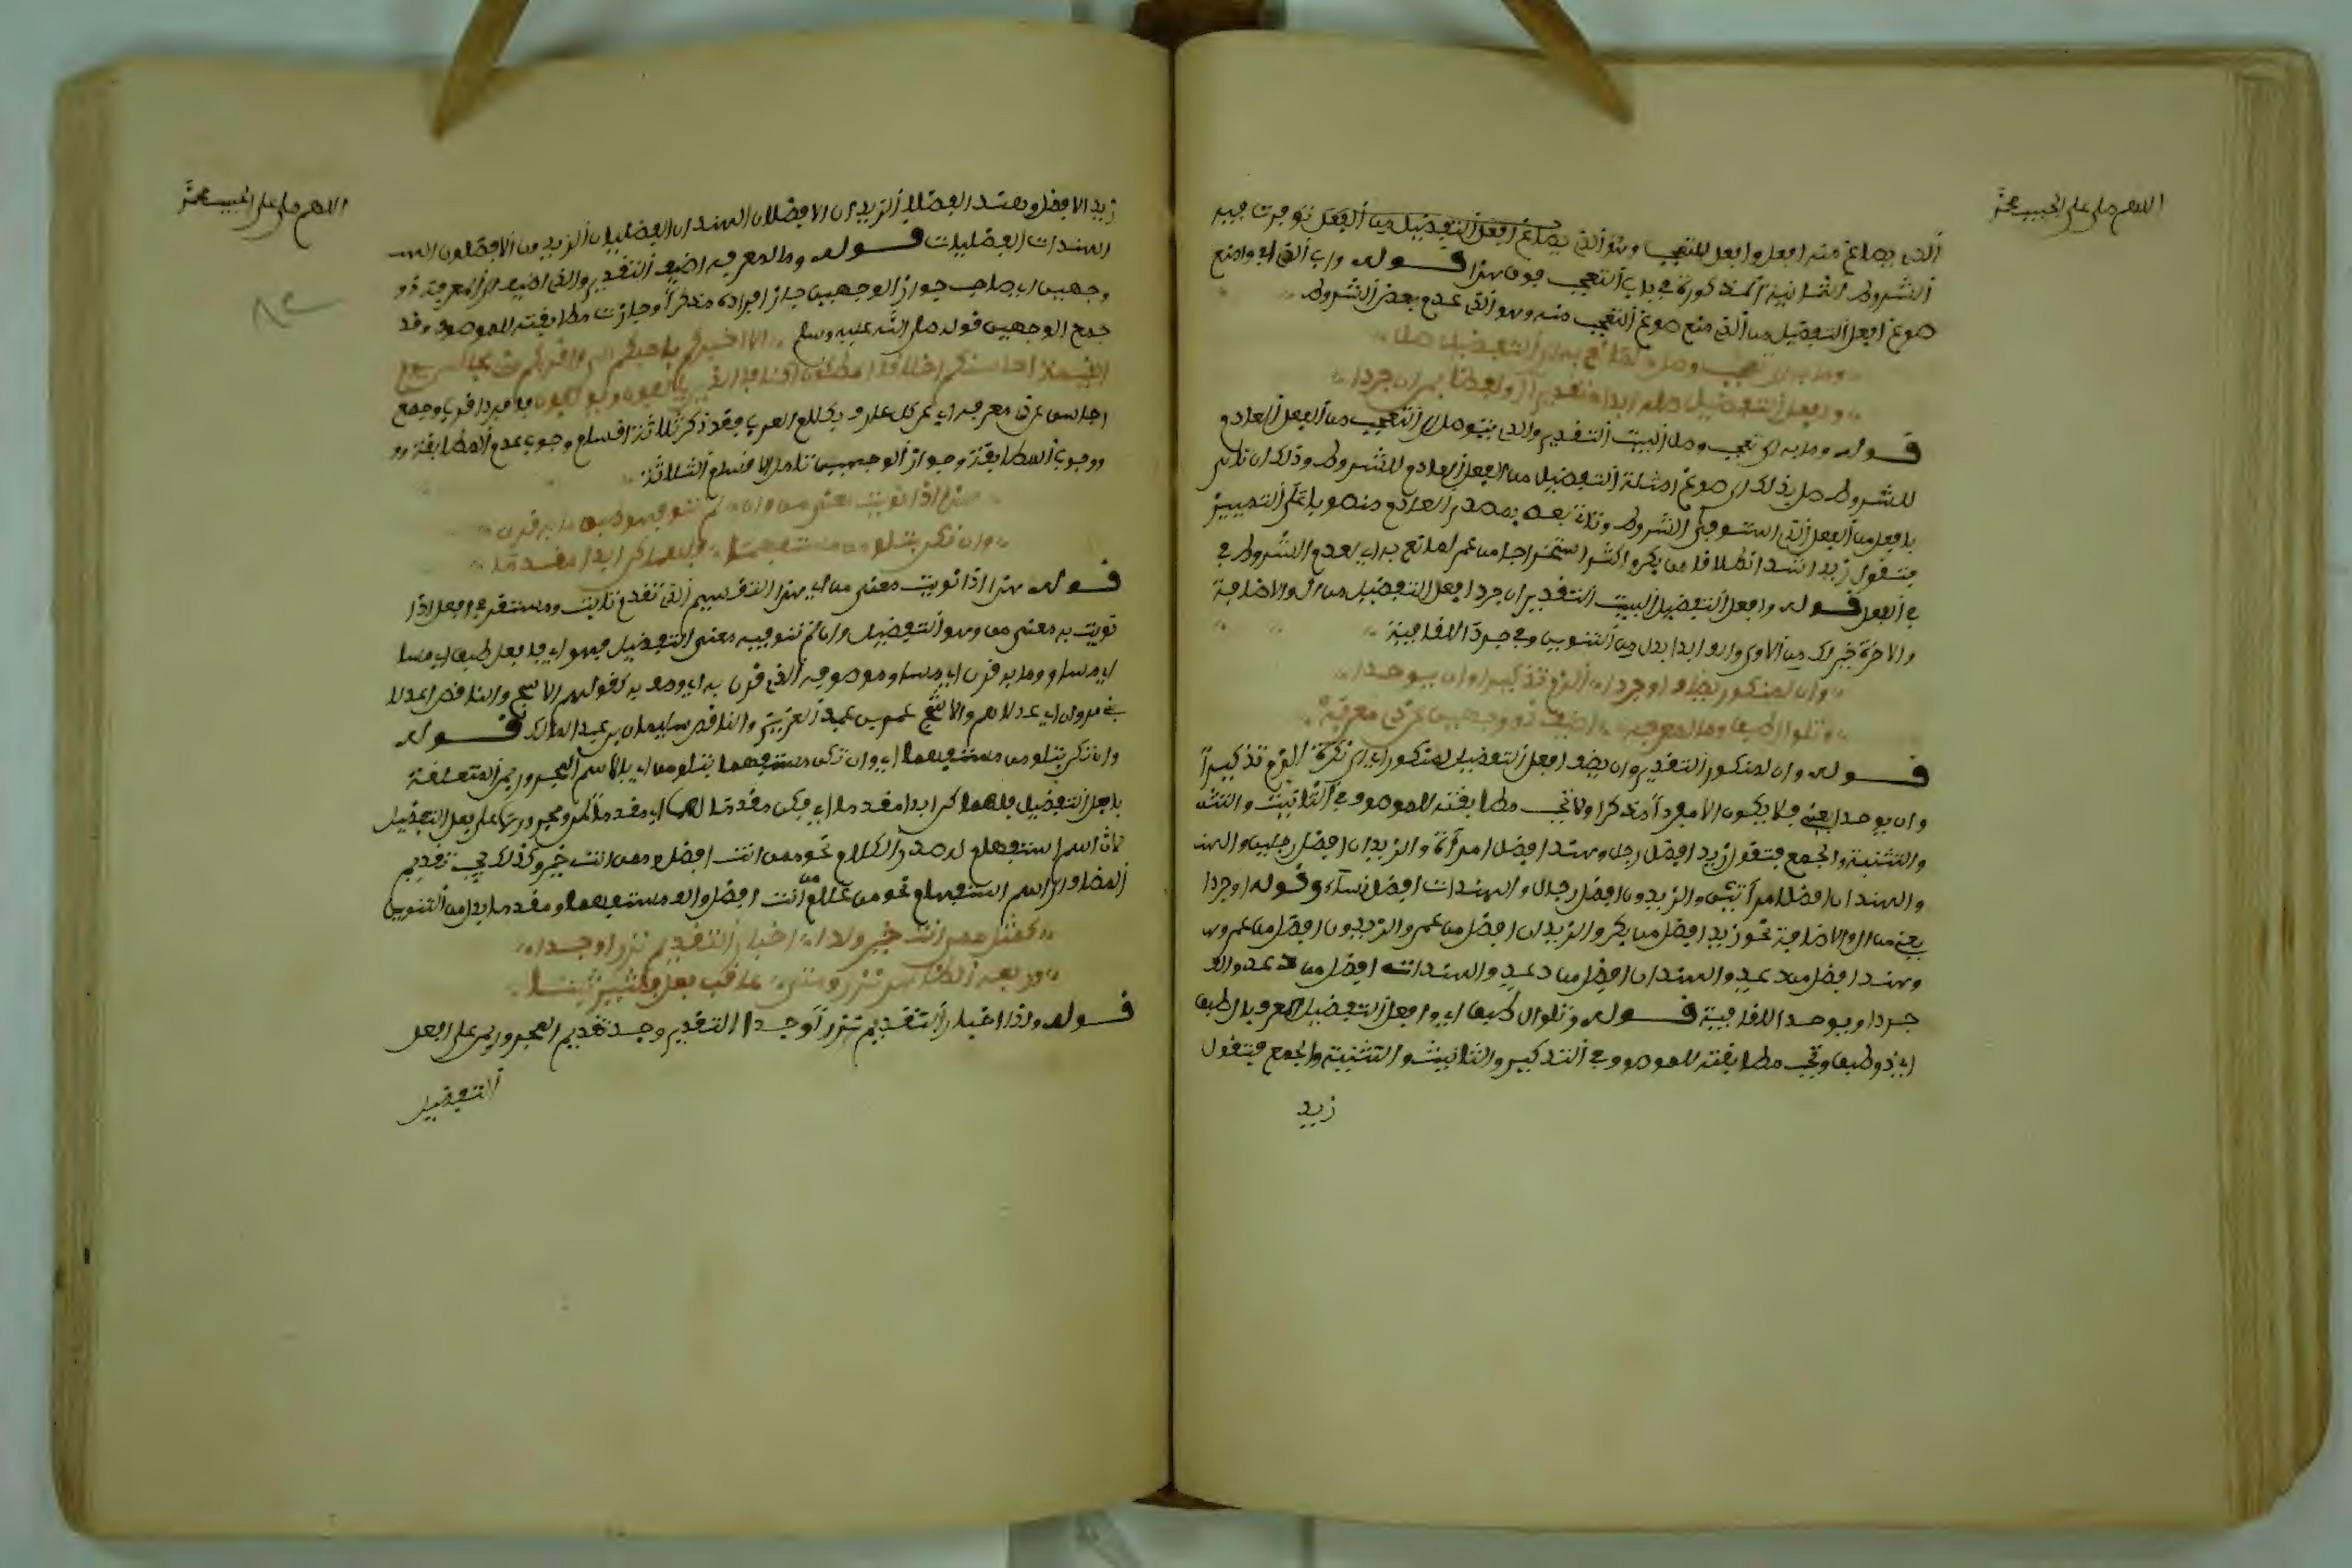 اللهم صل على الحبيب محمد
الذي يصاغ منه افعل وافعل للتعجب وهو الذي يصاغ افعل التفضيل من الفعل توفرت فيه
الشروط الثمانية المذكورة في باب التعجب فوق هذا قوله واب الذي ابي وامنع
صوغ افعل التفضيل من الذي منع صوغ التعجب منه وهو الذي عدم بعض الشروط
وما به الى تعجب وصل لمانع به الى التفضيل صل
وافعل التفضيل صله ابدا تقديرا او لفظا بمن ان جردا
قوله وما به الى تعجب وصل البيت التقدير والذي يتوصل الى التعجب من الفعل العادم
للشروط صل بذلك الى صوغ امثلة التفضيل من الفعل العادم للشروط وذلك ان تاتي
بافعل من الفعل الذي استوفى الشروط وتات بعده بمصدر العادم منصوبا على التمييز
فتقول زيد اشد انطلاقا من بكر واكثر استخراجا من عمر لمانع به اي لعدم الشروط في
في الفعل قوله وافعل التفضيل البيت التقدير ان جرد افعل التفضيل من ال والاضافة
والاخرة خير لك من الاولى والف ابدا بدل من التنوين وفي جردا للقافية
وان لمنكور يضف او جردا الزم تذكيرا وان يوحدا
وتلو ال طبق وما لمعرفه اضيف ذو وجهين عن ذي معرفه
قوله وان لمنكور التقدير وان يضف افعل التفضيل لمنكور اي الى نكرة الزم تذكيرا
وان يوحد يعني فلا يكون الا مفردا مذكرا ولا تجب مطابقته للموصوف في التانيث والتث
والتثنية والجمع فتقول زيد افضل رجل وهند افضل امراة والزيدان افضل رجلين والهند
والهندان افضل امراتين والزيدون افضل رجال والهندات افضل نساء وقوله او جردا
يعني من ال والاضافة نحو زيد افضل من بكر والزيدان افضل من عمر والزيدون افضل من عمر وه
وهند افضل من دعد والهندان افضل من دعد والهندات افضل من دعد والف
جردا ويوحدا للقافية قوله وتلو ال طبق اي وافعل التفضيل المعرف بال طبق
اي ذو طبق وتجب مطابقته للموصوف في التذكير والتانيث والتثنية والجمع فتقول
زيد
اللهم صل على الحبيب محمد
زيد الافضل وهند الفضلى الزيدان الافضلان الهندان الفضليان الزيدون الافضلون الهند
الهندات الفضليات قوله وما لمعرفه اضيف التقدير والذي اضيف الى المعرفة ذو
وجهين اي صاحب جواز الوجهين جاز افراده مذكرا وجازت مطابقته للموصوف وقد
جمع الوجهين قوله صلى الله عليه وسلم الا اخبركم باحبكم الي واقربكم مني مجالس يوم
القيمة احاسنكم اخلاقا الموطئون اكنافا الذين يالفون ويولفون فافرد اقرب وجمع
احاسن عن ذي معرفه اي عن كل عارف بكلام العرب فقد ذكر ثلاثة اقسام وجوب عدم المطابقة وو
ووجوب المطابقة وجواز الوجهين تامل الاقسام الثلاثة
هذا اذا نويت معنى من وان لم تنو فهو طبق ما به قرن
وان تكن بتلو من مستفهما فلهما كن ابدا مقدما
قوله هذا اذا نويت معنى من اي هذا التقسيم الذي تقدم ثابت ومستقر في افعل اذا
نويت به معنى من وهو التفضيل وان لم تنو فيه معنى التفضيل فهو اي فافعل طبق اي مسا
اي مساو وما به قرن اي مساو موصوفه الذي قرن به اي وصف به كقولهم الاشج والناقص اعدلا
بني مروان اي عدلاهم والاشج عمر بن عبد العزيز والناقص سليمان بن عبد الملك قوله
وان تكن بتلو من مستفهما اي وان تكن مستفهما بتلو من اي بالاسم المجرور بمن المتعلقة
بافعل التفضيل فلهما كن ابدا مقدما اي فكن مقدما لهما اي مقدما لمن ومجرورها على فعل التفضيل
لان اسم استفهام له صدر الكلام نحو ممن انت افضل وممن انت خير وكذلك يجب تقديم
المضاف الى اسم استفهام نحو من غلام من انت افضل والف مستفهما ومقدما بدل من التنوين
كمثل ممن انت خير ولدا اخبار التقديم نزرا وجدا
ورفعه الظاهر نزر ومتى عاقب فعلا فكثيرا ثبتا
قوله ولذا اخبار التقديم نزرا وجدا التقدير وجد تقديم المجرور بمن على افعل
التفضيل